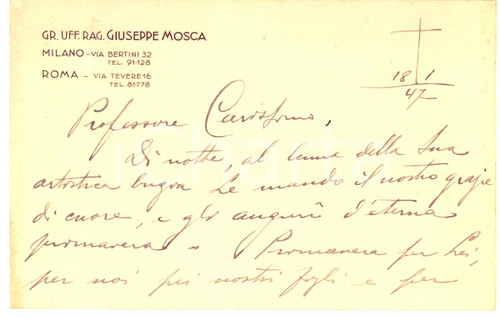 GR. UFF. RAG. GIUSEPPE MOSCA
MILANO - VIA BERTINI 32
TEL. 91-128
ROMA - VIA TEVERE 16
TEL. 81-778
18 1
47
Professore Carissimo,
Di notte, al lume della Sua
artistica bugia Le mando il nostro grazie
di cuore, e gli auguri d'eterna
primavera. Primavera per Lei,
per noi pei nostri figli e per